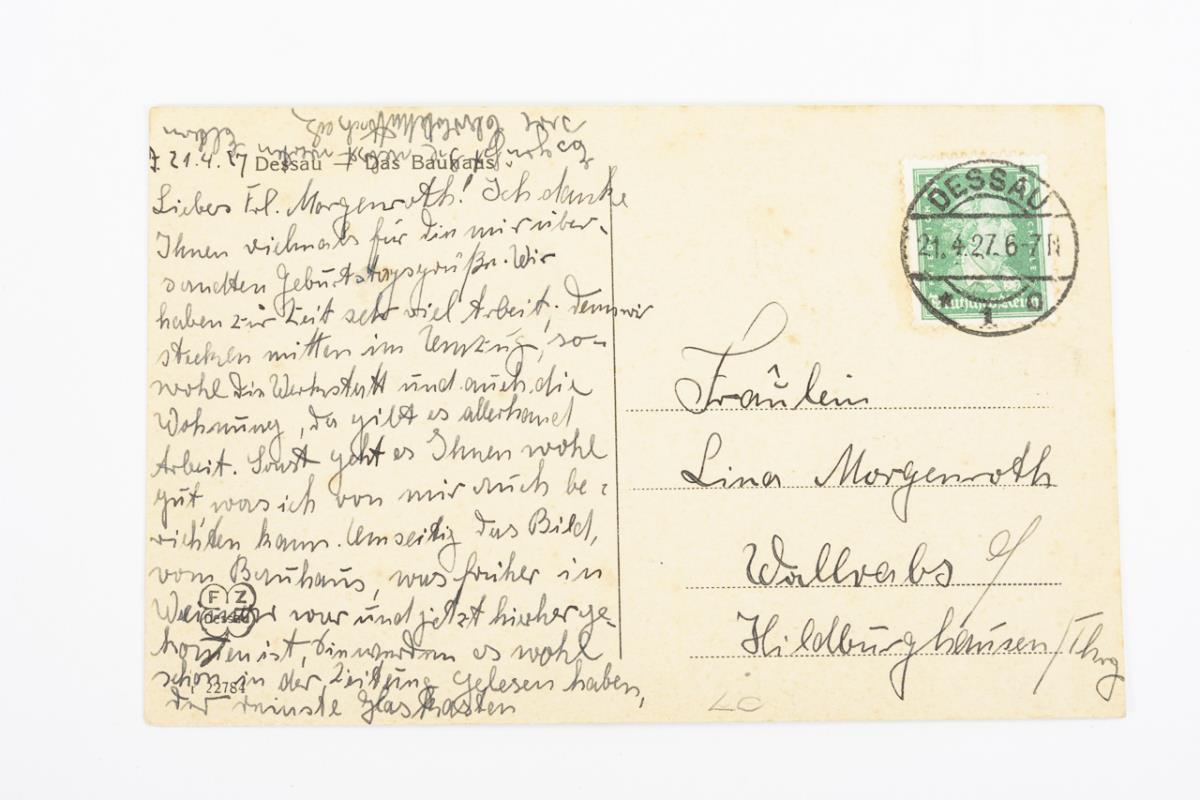 21.4.27
Dessau — Das Bauhaus
Liebes Frl. Morgenroth! Ich danke
Ihnen vielmals für die mir über-
sandten Geburtstagsgrüße. Wir
haben zur Zeit sehr viel Arbeit, denn wir
stecken mitten im Umzug, so-
wohl die Werkstatt und auch die
Wohnung, da gibt es allerhand
Arbeit. Sonst geht es Ihnen wohl
gut, was ich von mir auch be-
richten kann. Umseitig das Bild,
vom Bauhaus, was früher in
Weimar war und jetzt hierher ge-
kommen ist, Sie werden es wohl
schon in der Zeitung gelesen haben,
der reinste Glaskasten
F Z
22784
DESSAU
21.4.27. 6-7N
1
Deutsches Reich
Fräulein
Lina Morgenroth
Wallrabs
Hildburghausen/Thrg